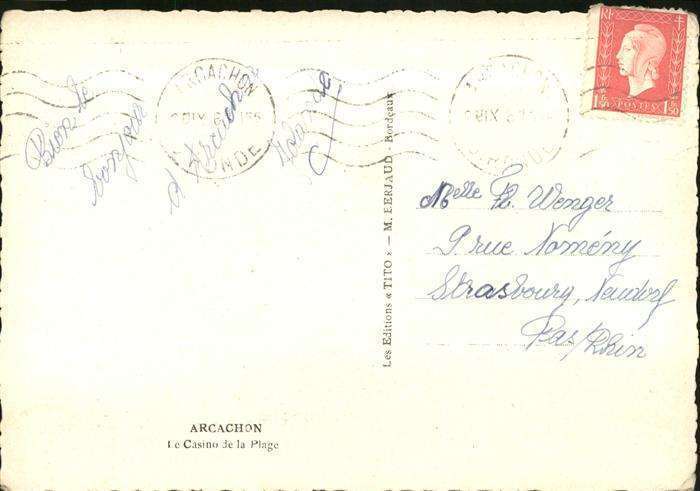 Bien de
bonjour
d'Arcachon
ARCACHON
GIRONDE
ARCACHON
GIRONDE
RF
1F50 POSTES 1F50
Les Editions « TITO » — M. BERJAUD - Bordeaux
Melle H. Wenger
9 rue Nomény
Strasbourg, Neudorf
Bas/Rhin
ARCACHON
Le Casino de la Plage